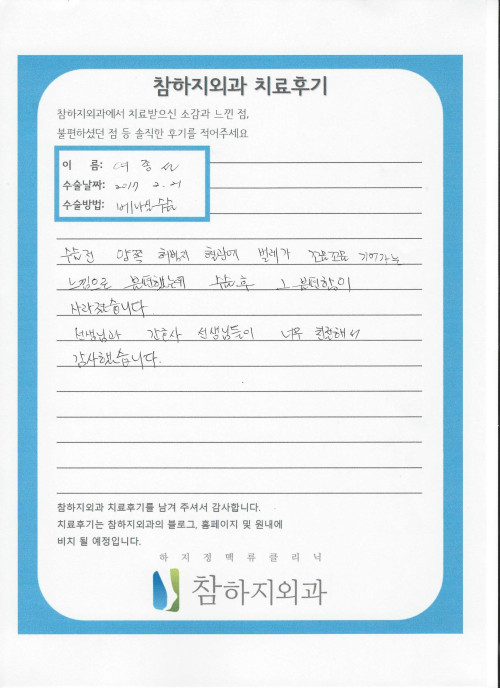 참하지외과 치료후기
참하지외과에서 치료받으신 소감과 느낀 점,
불편하셨던 점 등 솔직한 후기를 적어주세요
이 름: 여종선
수술날짜: 2017 2. 21
수술방법: 베나실수술
수술전 양쪽 허벅지 혈관에 벌레가 꼬물꼬물 기어가는
느낌으로 불편했는데 수술후 그 불편함이
사라졌습니다
선생님과 간호사 선생님들이 너무 친절해서
감사했습니다.
참하지외과 치료후기를 남겨 주셔서 감사합니다.
치료후기는 참하지외과의 블로그, 홈페이지 및 원내에
비치 될 예정입니다.
하지정맥류클리닉
참하지외과